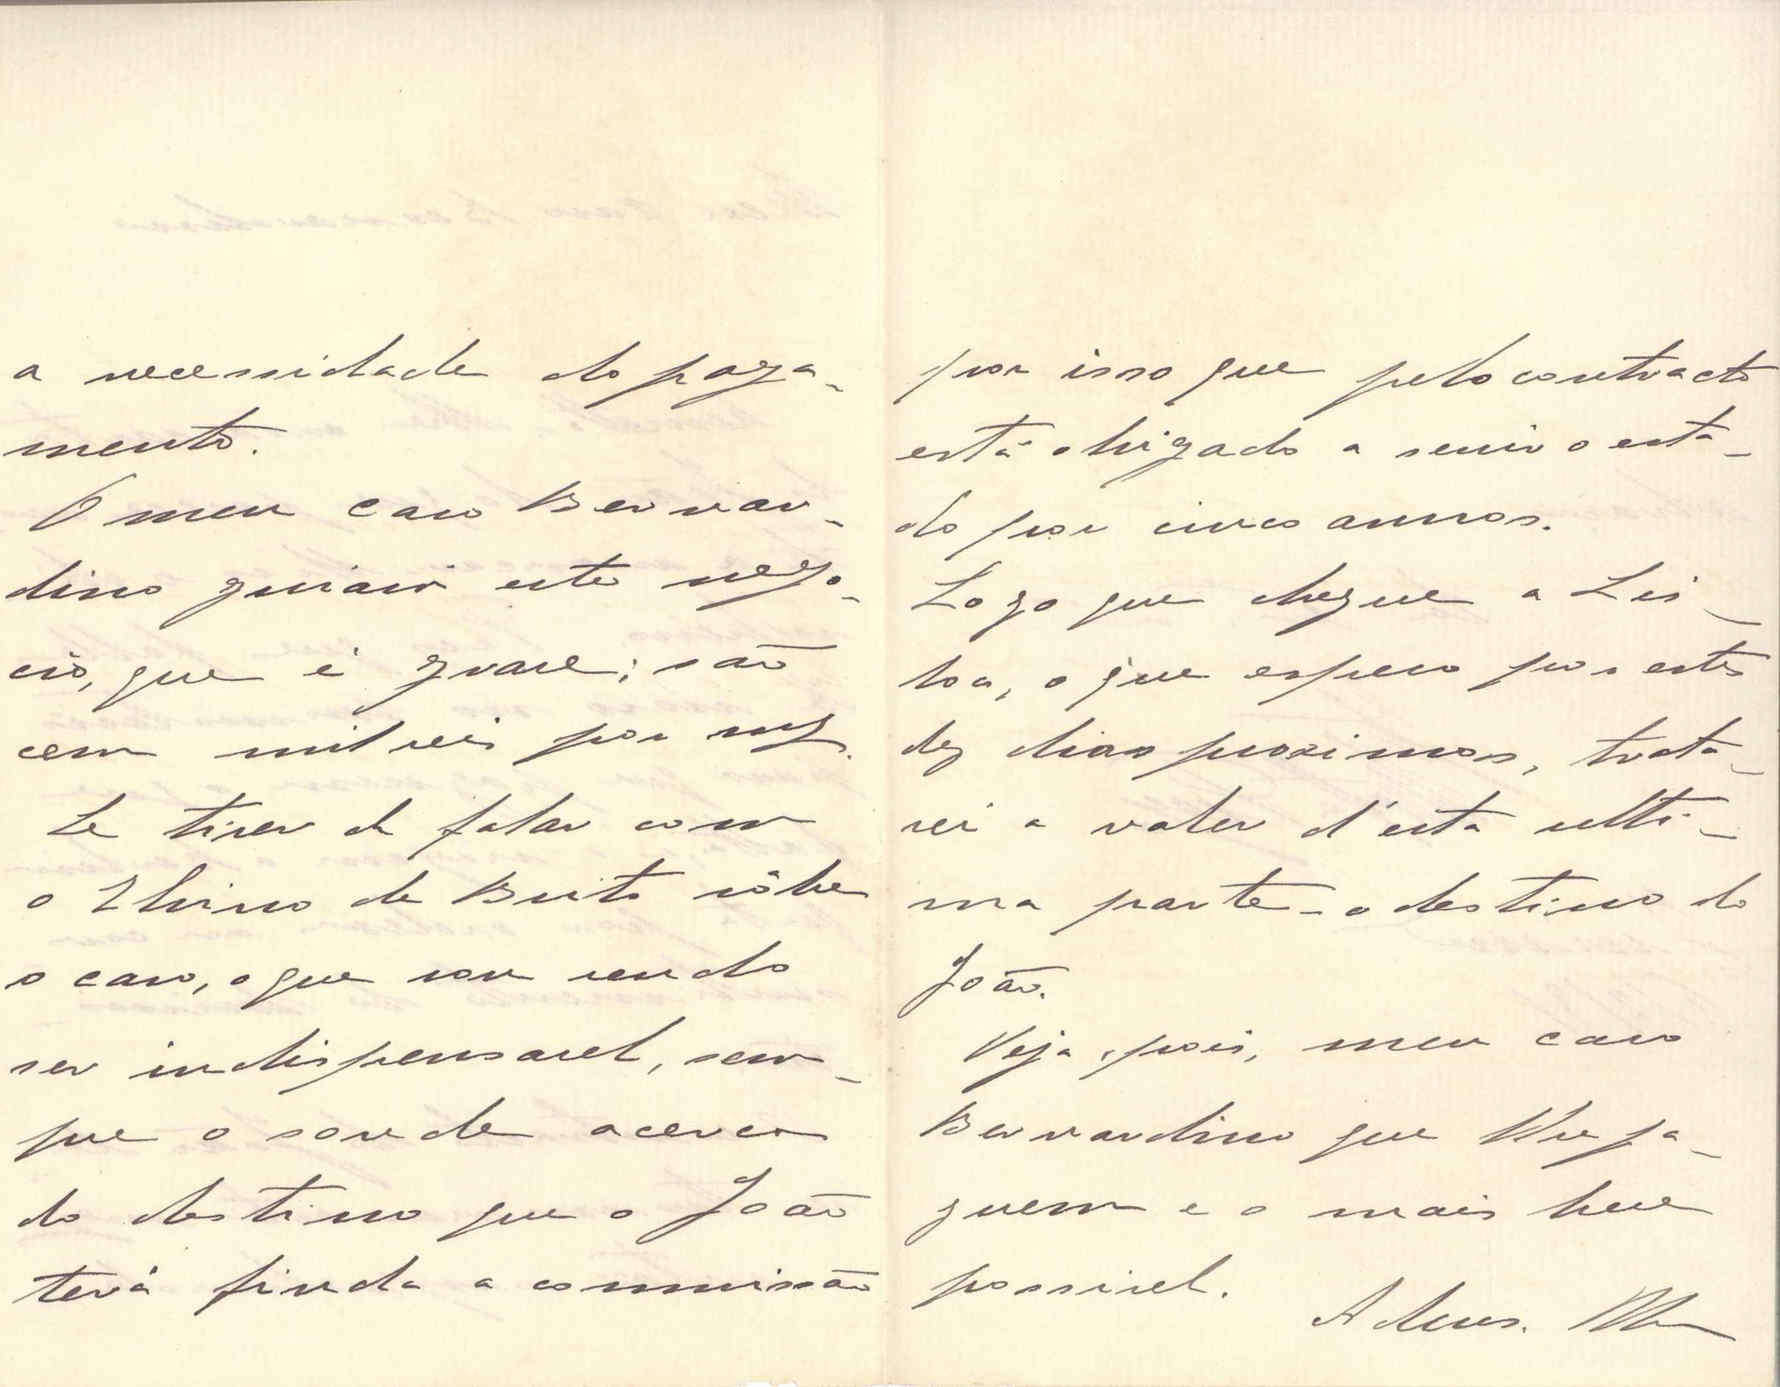 a necessidade do paga-
mento.
O meu caro Bernar-
dino guiará este nego-
cio, que é grave; são
cem mil reis por mez.
Se tiver de falar com
o Elvino de Brito sôbre
o caso, o que non sendo
ser indispensavel, sem-
pre o sonde acerca
do destino que o João
terá finda a commissão
por isso que pelo contracto
está obrigado a servir o esta-
do por cinco annos.
Logo que chegue a Lis-
boa, o que espero por estes
dez dias proximos, trata-
rei a valer d'esta ulti-
ma parte - o destino do
João.
Veja, pois, meu caro
Bernardino que lhe pa-
guem e o mais breve
possivel.
Adeus.